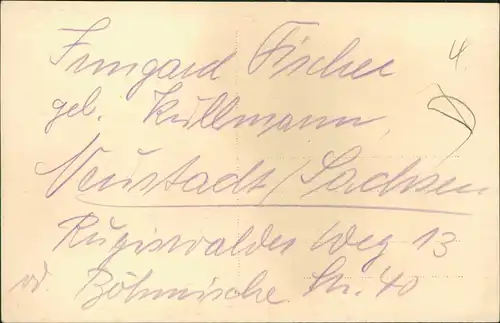 Irmgard Fischer 4.
geb. Kullmann,
Neustadt/Sachsen
Rugiswalder Weg 13
od. Böhmische Str. 40